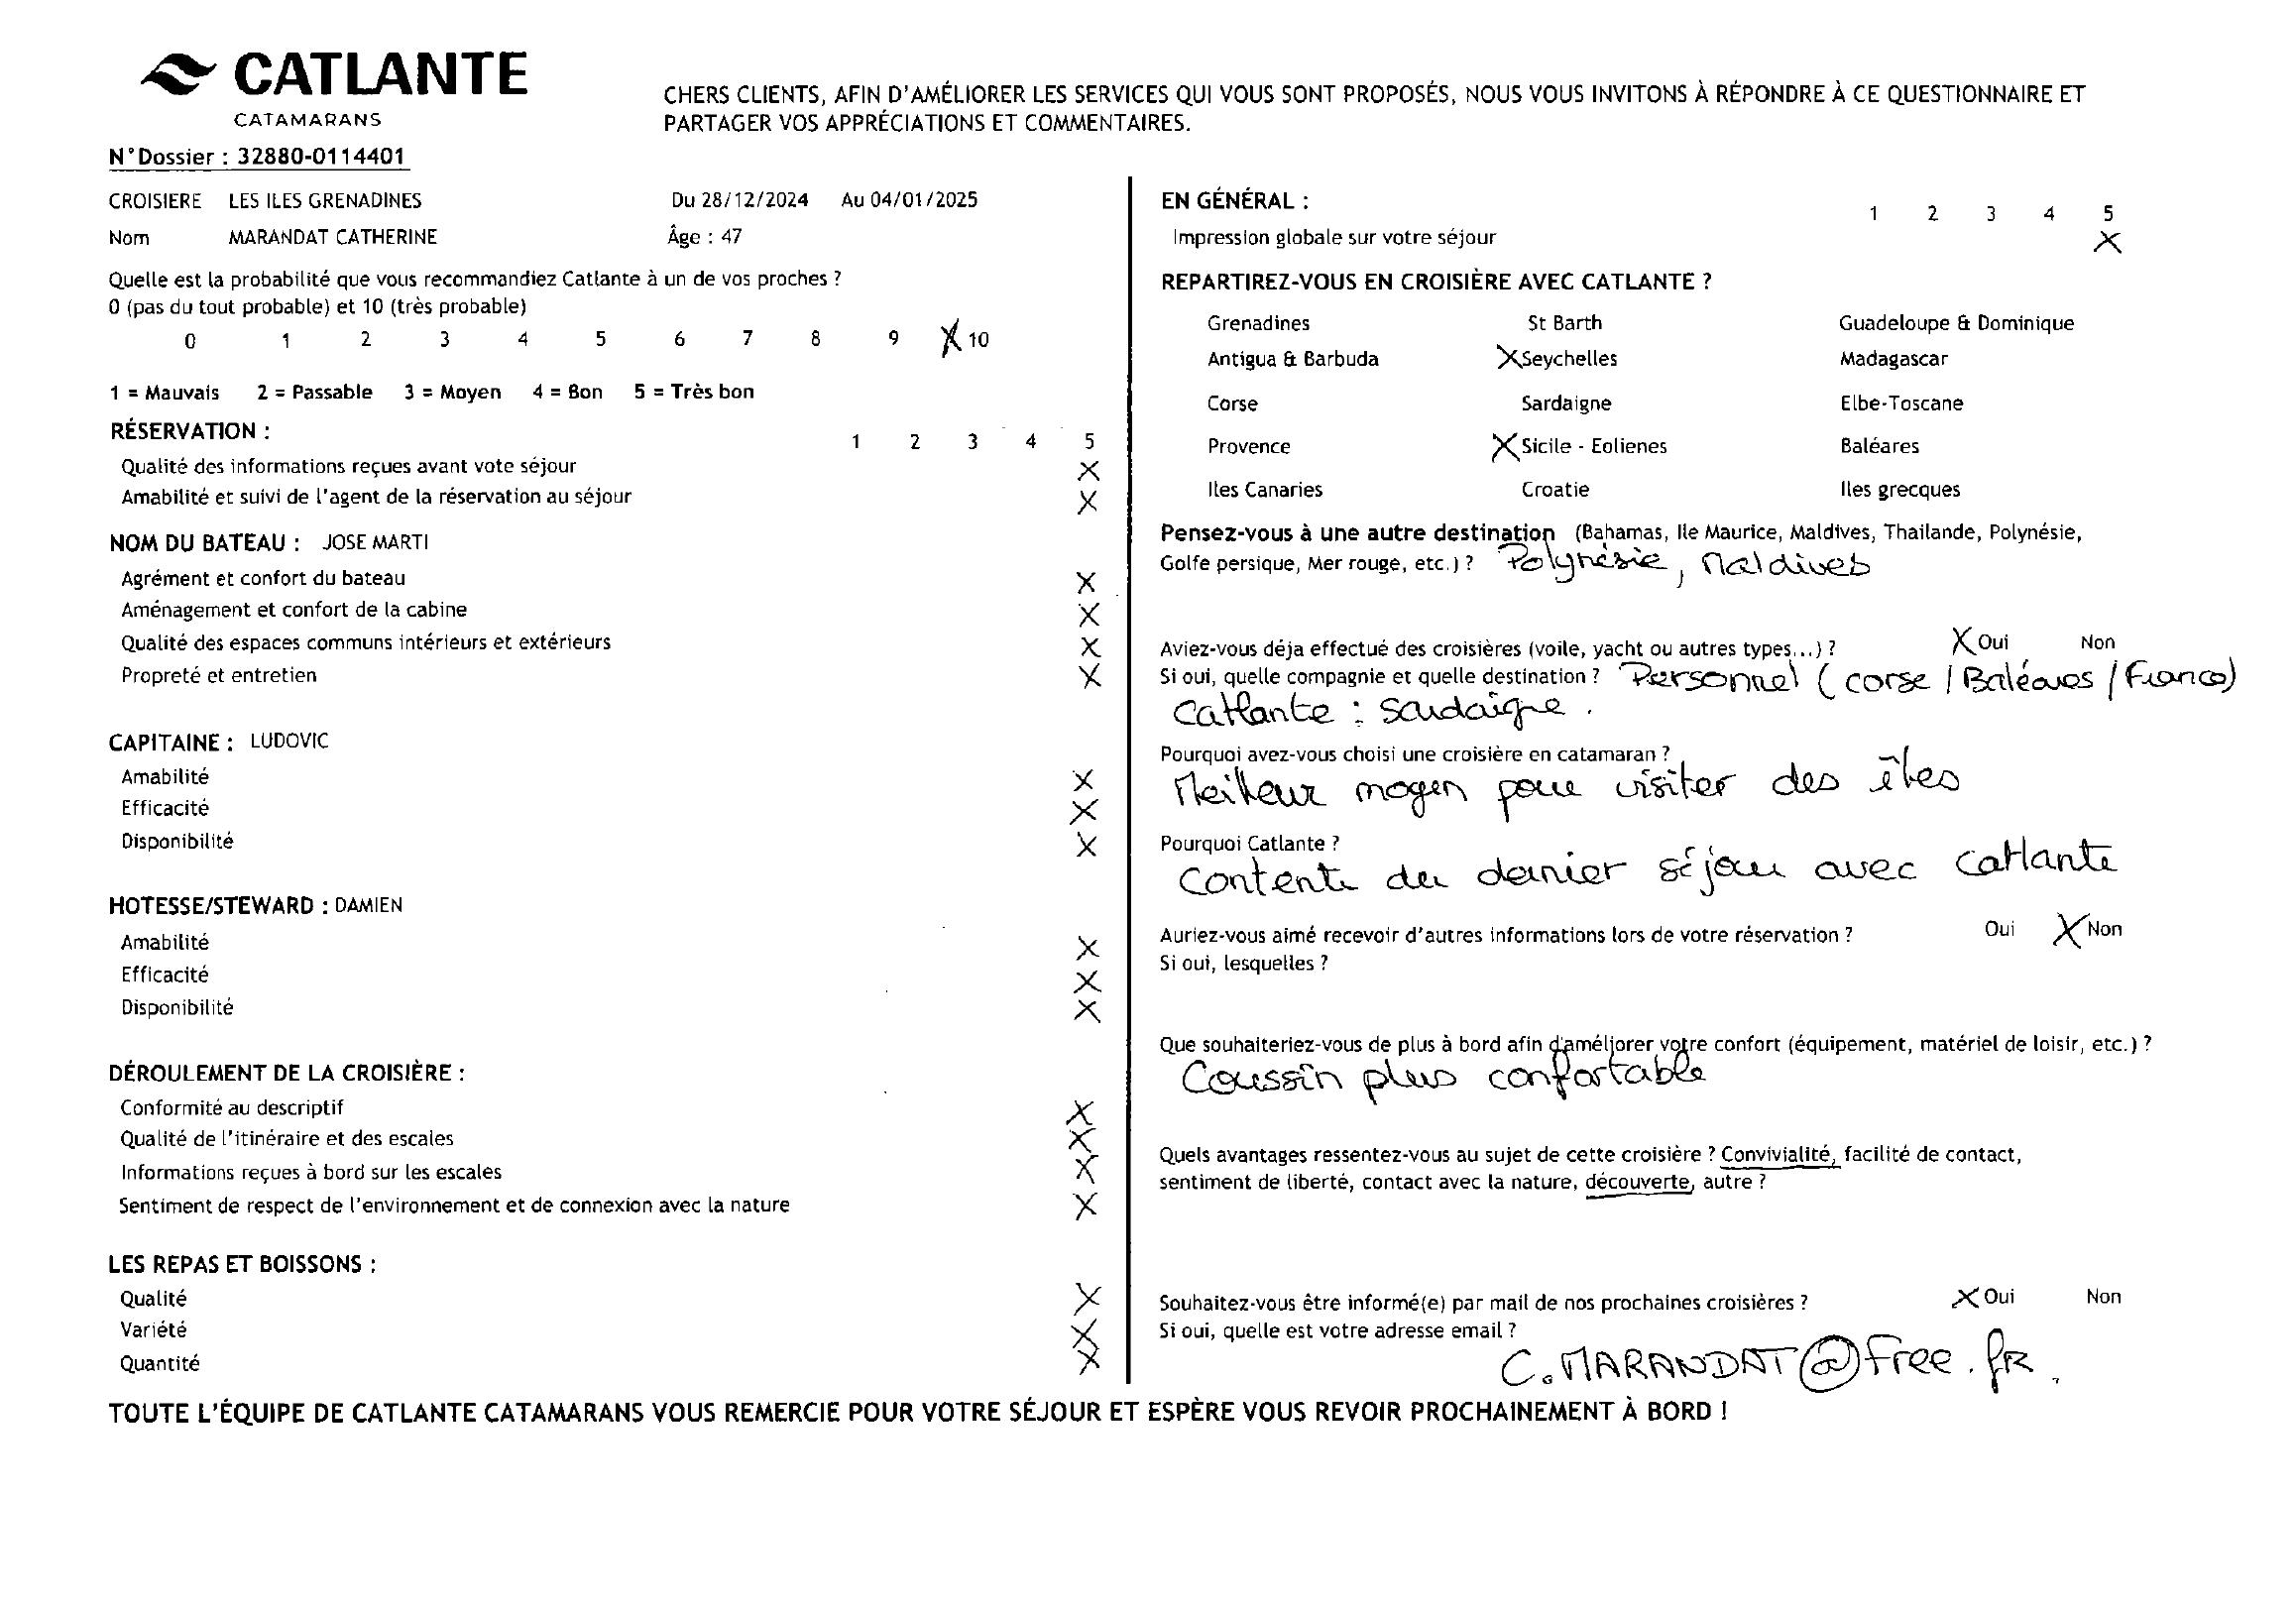 CATLANTE
CATAMARANS
CHERS CLIENTS, AFIN D'AMÉLIORER LES SERVICES QUI VOUS SONT PROPOSÉS, NOUS VOUS INVITONS À RÉPONDRE À CE QUESTIONNAIRE ET
PARTAGER VOS APPRÉCIATIONS ET COMMENTAIRES.
N°Dossier : 32880-0114401
CROISIERE LES ILES GRENADINES Du 28/12/2024 Au 04/01/2025
Nom MARANDAT CATHERINE Âge : 47
Quelle est la probabilité que vous recommandiez Catlante à un de vos proches ?
0 (pas du tout probable) et 10 (très probable)
0 1 2 3 4 5 6 7 8 9 X 10
1 = Mauvais 2 = Passable 3 = Moyen 4 = Bon 5 = Très bon
RÉSERVATION :
1 2 3 4 5
Qualité des informations reçues avant vote séjour X
Amabilité et suivi de l'agent de la réservation au séjour X
NOM DU BATEAU : JOSE MARTI
Agrément et confort du bateau X
Aménagement et confort de la cabine X
Qualité des espaces communs intérieurs et extérieurs X
Propreté et entretien X
CAPITAINE : LUDOVIC
Amabilité X
Efficacité X
Disponibilité X
HOTESSE/STEWARD : DAMIEN
Amabilité X
Efficacité X
Disponibilité X
DÉROULEMENT DE LA CROISIÈRE :
Conformité au descriptif X
Qualité de l'itinéraire et des escales X
Informations reçues à bord sur les escales X
Sentiment de respect de l'environnement et de connexion avec la nature X
LES REPAS ET BOISSONS :
Qualité X
Variété X
Quantité X
EN GÉNÉRAL :
1 2 3 4 5
Impression globale sur votre séjour X
REPARTIREZ-VOUS EN CROISIÈRE AVEC CATLANTE ?
Grenadines St Barth Guadeloupe & Dominique
Antigua & Barbuda X Seychelles Madagascar
Corse Sardaigne Elbe-Toscane
Provence X Sicile - Eolienes Baléares
Iles Canaries Croatie Iles grecques
Pensez-vous à une autre destination (Bahamas, Ile Maurice, Maldives, Thailande, Polynésie,
Golfe persique, Mer rouge, etc.) ? Polynésie, Maldives
Aviez-vous déja effectué des croisières (voile, yacht ou autres types...) ? X Oui Non
Si oui, quelle compagnie et quelle destination ? Personnel (corse / Baléares / France)
Catlante : sardaigne.
Pourquoi avez-vous choisi une croisière en catamaran ?
Meilleur moyen pour visiter des îles
Pourquoi Catlante ?
Contente du dernier séjour avec Catlante
Auriez-vous aimé recevoir d'autres informations lors de votre réservation ? Oui X Non
Si oui, lesquelles ?
Que souhaiteriez-vous de plus à bord afin d'améliorer votre confort (équipement, matériel de loisir, etc.) ?
Coussin plus confortable
Quels avantages ressentez-vous au sujet de cette croisière ? Convivialité, facilité de contact,
sentiment de liberté, contact avec la nature, découverte, autre ?
Souhaitez-vous être informé(e) par mail de nos prochaines croisières ? X Oui Non
Si oui, quelle est votre adresse email ?
C.MARANDAT@Free.fR.
TOUTE L'ÉQUIPE DE CATLANTE CATAMARANS VOUS REMERCIE POUR VOTRE SÉJOUR ET ESPÈRE VOUS REVOIR PROCHAINEMENT À BORD !